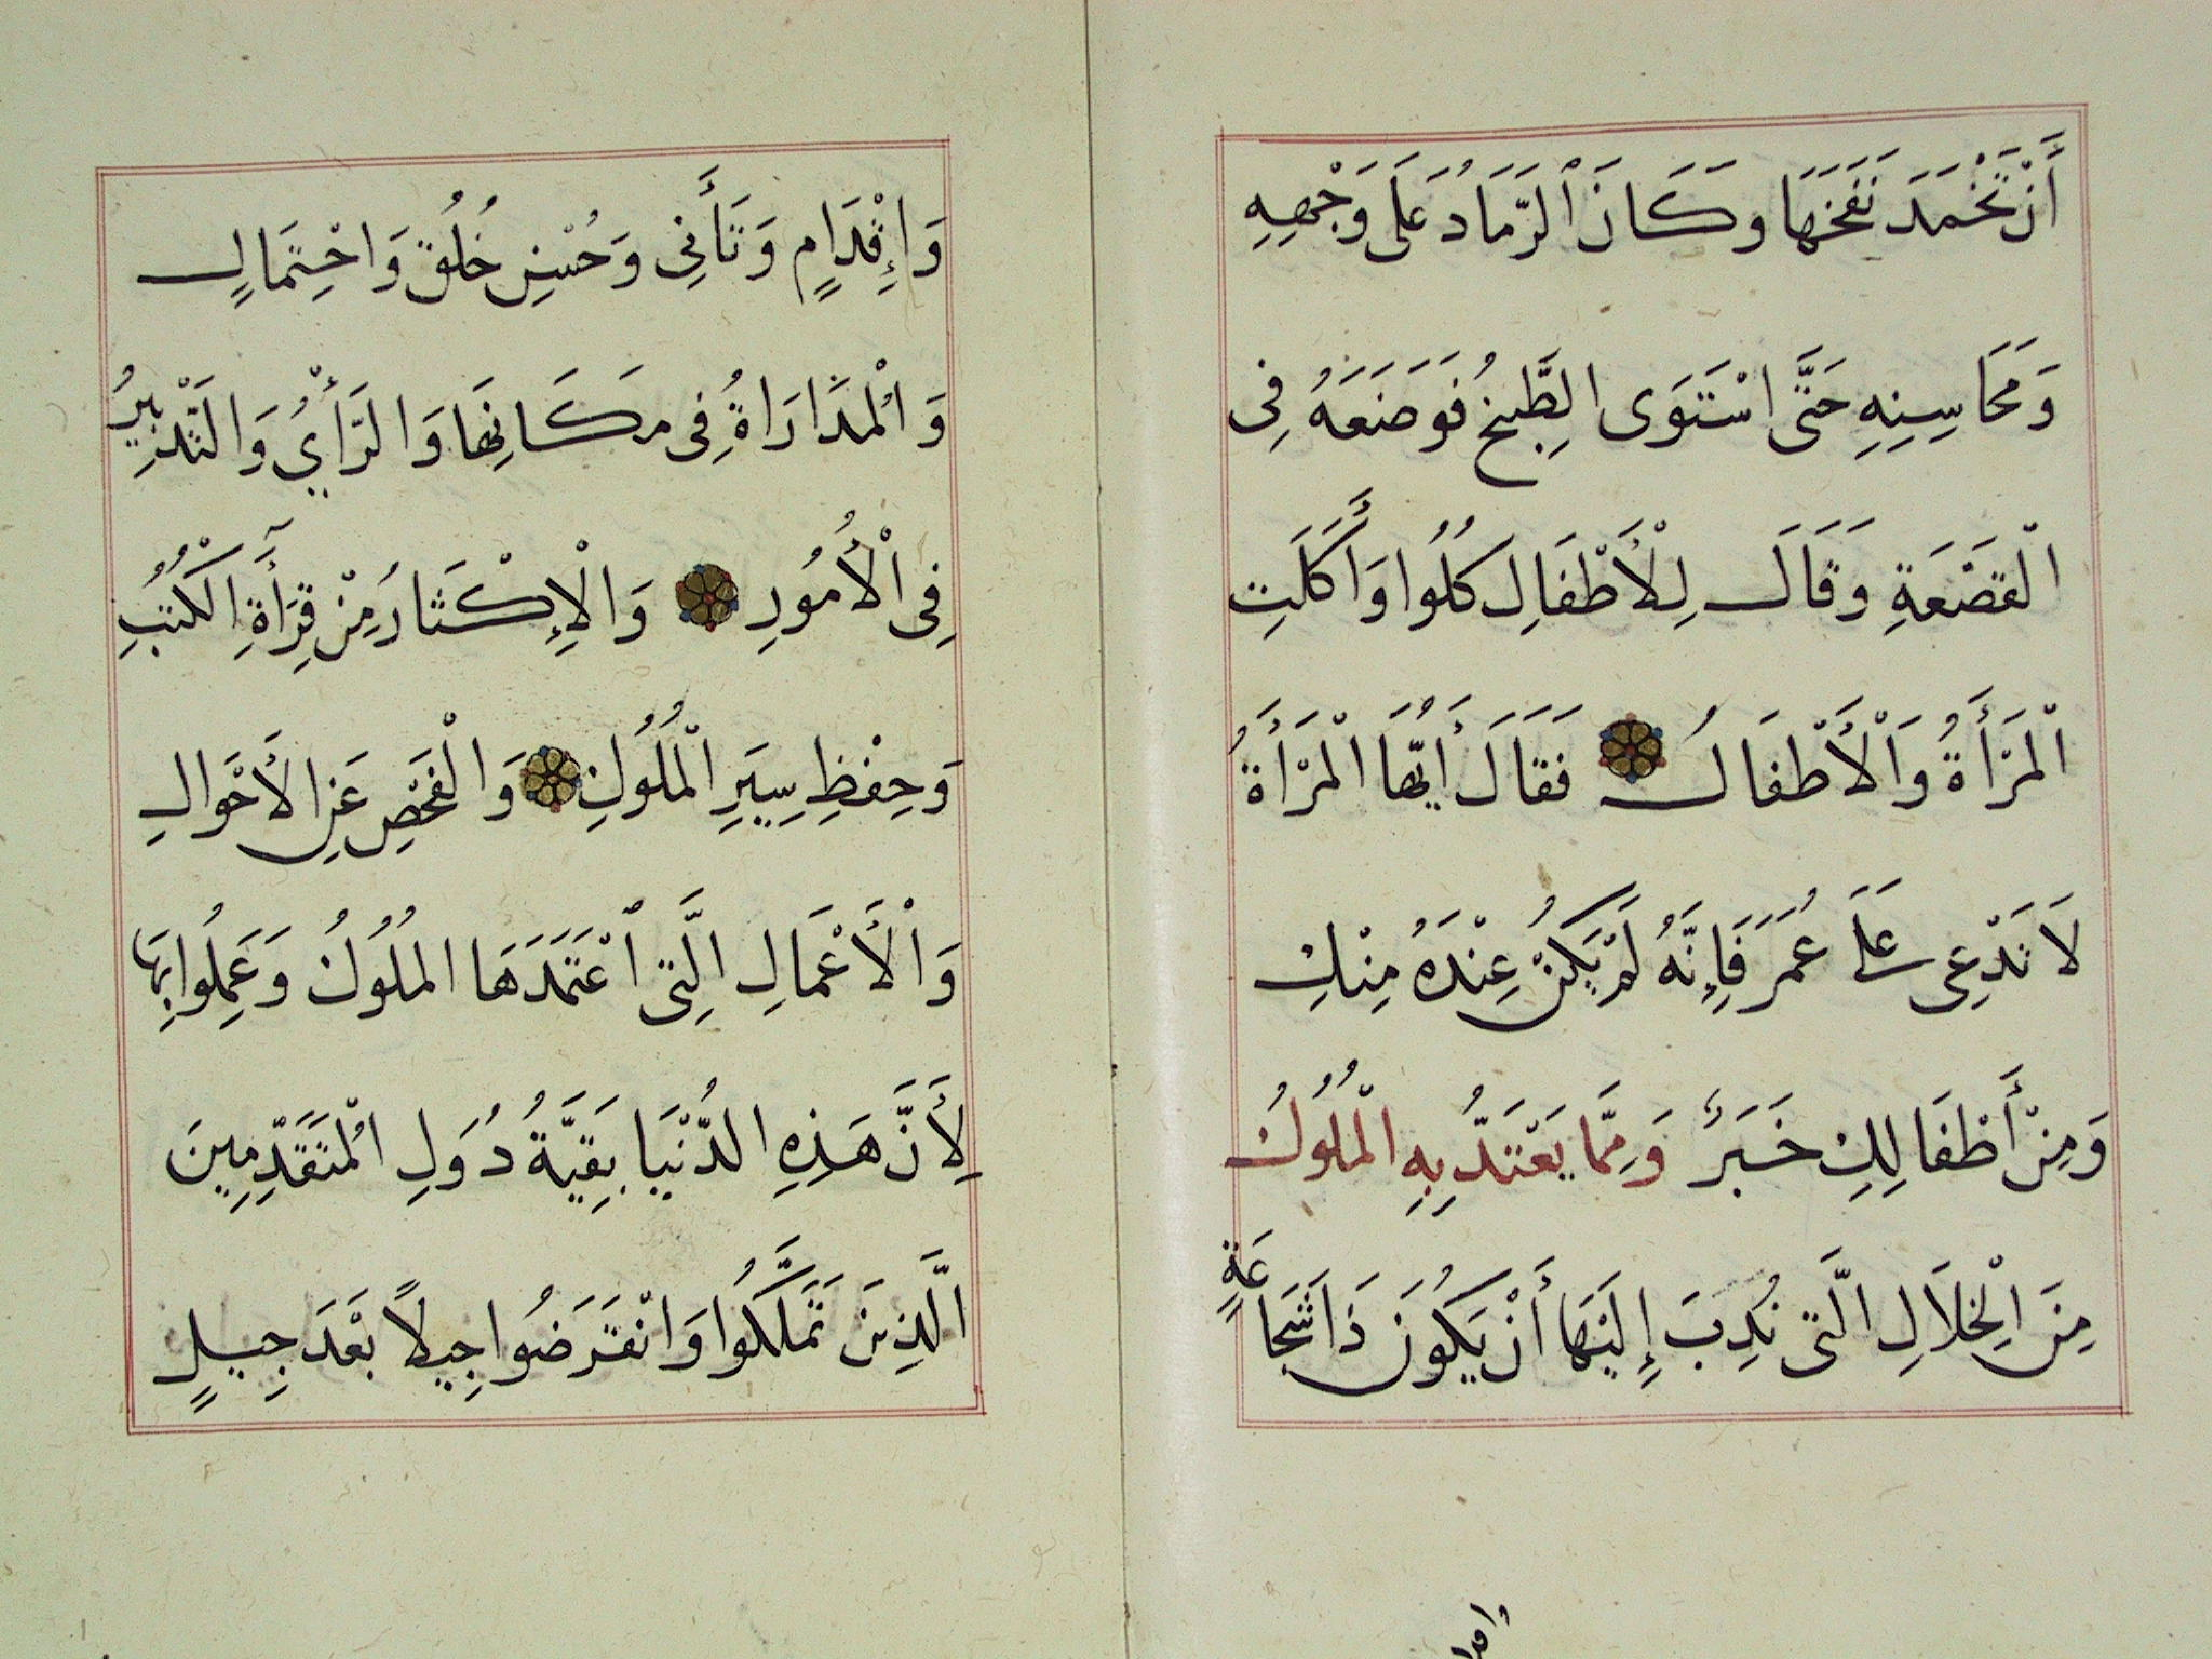 أَنْ تَخْمَدَ نَفَخَهَا وَكَانَ ٱلرَّمَادُ عَلَى وَجْهِهِ
وَمَحَاسِنِهِ حَتَّى اسْتَوَى الطَّبِيخُ فَوَضَعَهُ فِى
الْقَصْعَةِ وَقَالَ لِلْأَطْفَالِ كُلُوا وَأَكَلَتِ
الْمَرْأَةُ وَالْأَطْفَالُ فَقَالَ أَيَّتُهَا الْمَرْأَةُ
لَا تَدْعِى عَلَى عُمَرَ فَإِنَّهُ لَمْ يَكُنْ عِنْدَهُ مِنْكِ
وَمِنْ أَطْفَالِكِ خَبَرٌ وَمِمَّا يَعْتَدُّ بِهِ الْمُلُوكُ
مِنَ الْخِلَالِ الَّتِى نُدِبَ إِلَيْهَا أَنْ يَكُونَ ذَا شَجَاعَةٍ
واقدا
وَإِقْدَامٍ وَتَأَنِّى وَحُسْنِ خُلُقٍ وَاحْتِمَالٍ
وَالْمُدَارَاةُ فِى مَكَانِهَا وَالرَّأْيُ وَالتَّدْبِيرُ
فِى الْأُمُورِ وَالْإِكْثَارُ مِنْ قِرَأَةِ الْكُتُبِ
وَحِفْظِ سِيَرِ الْمُلُوكِ وَالْفَحْصِ عَنِ الأَحْوَالِ
وَالْأَعْمَالِ الَّتِى ٱعْتَمَدَهَا المُلُوكُ وَعَمِلُوا بِهَا
لِأَنَّ هَذِهِ الدُّنْيَا بَقِيَّةُ دُوَلِ الْمُتَقَدِّمِينَ
الَّذِينَ تَمَلَّكُوا وَانْقَرَضُوا جِيلاً بَعْدَ جِيلٍ